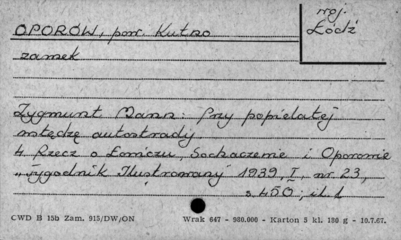 woj.
Łódź
OPORÓW, pow. Kutno
zamek
Zygmunt Mann: Przy popielatej
wstędze autostrady.
4. Rzecz o Łowiczu, Sochaczewie i Oporowie
"Tygodnik Ilustrowany" 1939, I, nr. 23,
s. 450; il. 1
CWD B 15b Zam. 915/DW/ON Wrak 647 - 980.000 - Karton 5 kl. 180 g - 10.7.67.